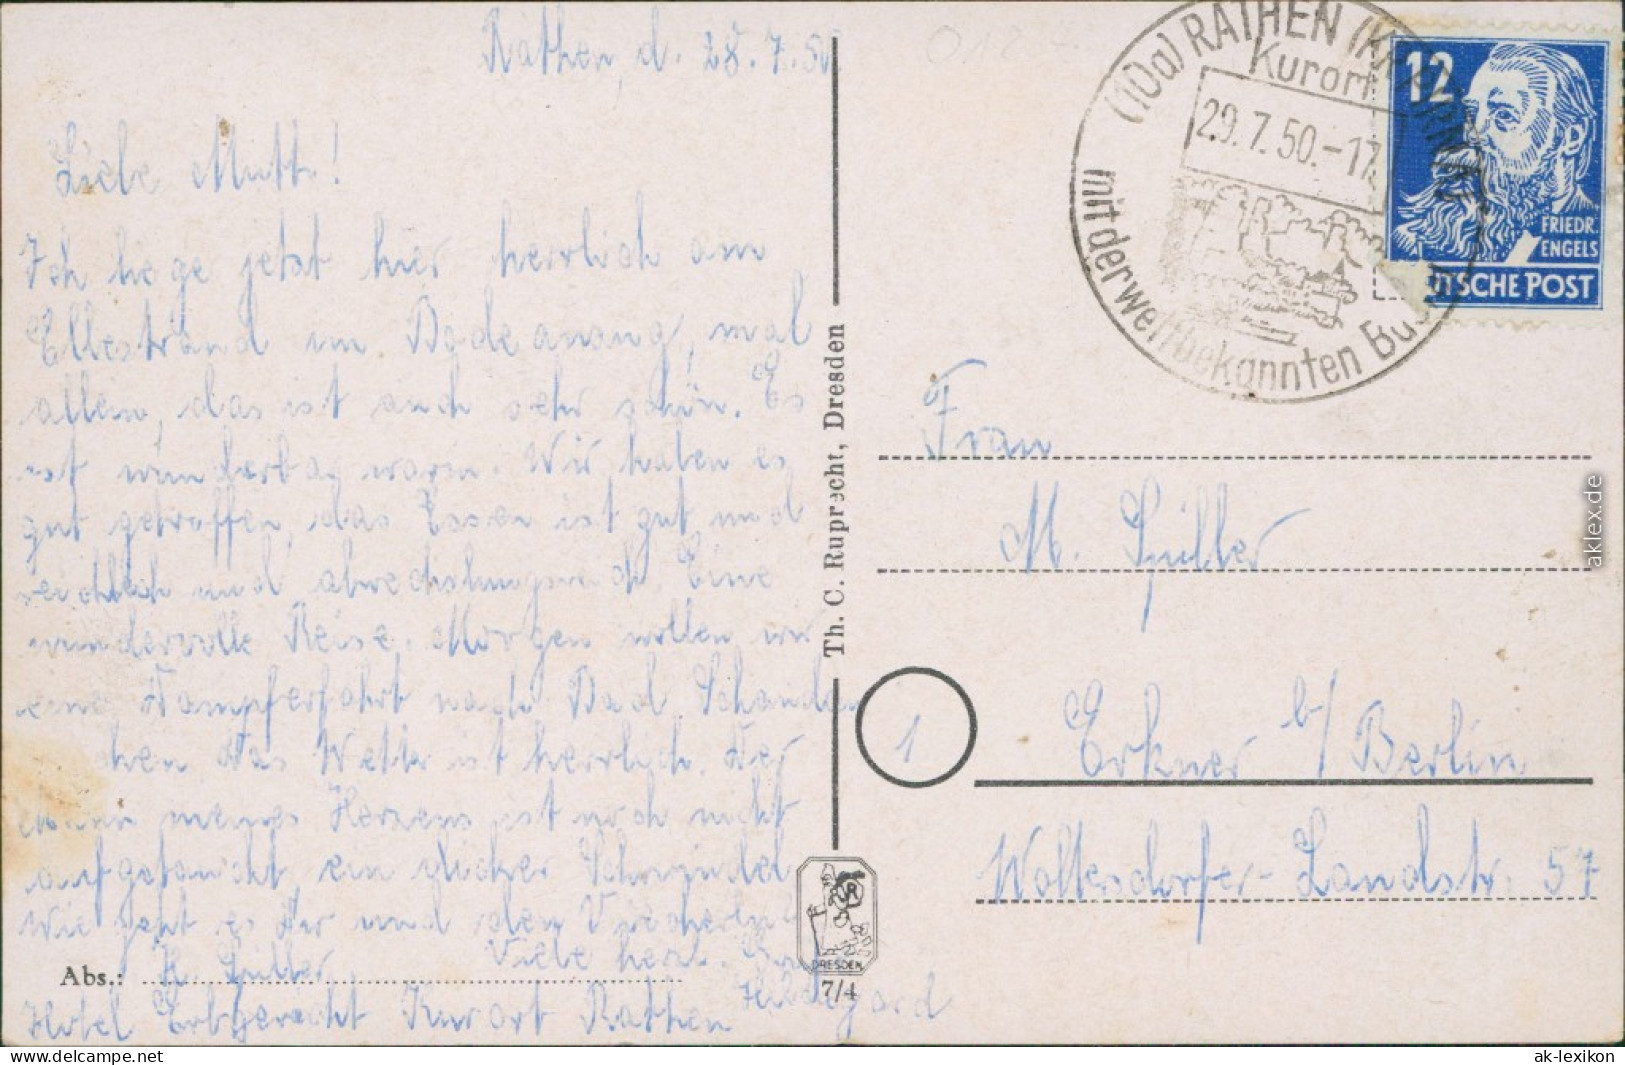 Rathen, d. 28.7.50
Liebe Mutti!
Ich liege jetzt hier herrlich am
Elbestrand im Badeanzug, mal
allein, das ist auch sehr schön. Es
ist wunderbar warm. Wir haben es
gut getroffen, das Essen ist gut und
reichlich und abwechslungsreich. Eine
wundervolle Reise. Morgen wollen wir
eine Dampferfahrt nach Bad Schandau
Das Wetter ist herrlich. Der
meines Herzens ist noch nicht
aufgetaucht, ein Schwindel
Wie geht es Dir und den
Viele herzl.
Abs.: H. Spiller
Hildegard
Hotel Erbgericht Kurort Rathen
Th. C. Ruprecht, Dresden
R
DRESDEN
7/4
(10a) RATHEN
Kurort
29.7.50.-17
mit der weltbekannten
12
FRIEDR.
ENGELS
TSCHE POST
Frau
M. Spiller
1
Erkner b/Berlin
Woltersdorfer-Landstr. 57
aklex.de
www.delcampe.net
ak-lexikon